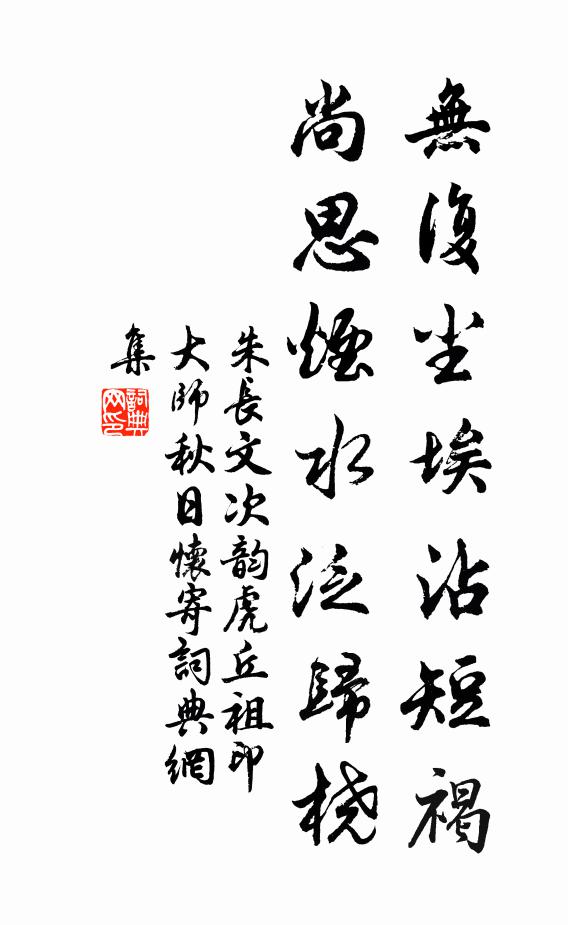 無復尘埃沾短褐
尚思煙水泛歸橈
朱長文次韵虎丘祖印
大師秋日懷寄詞典網
集
詞典
网印